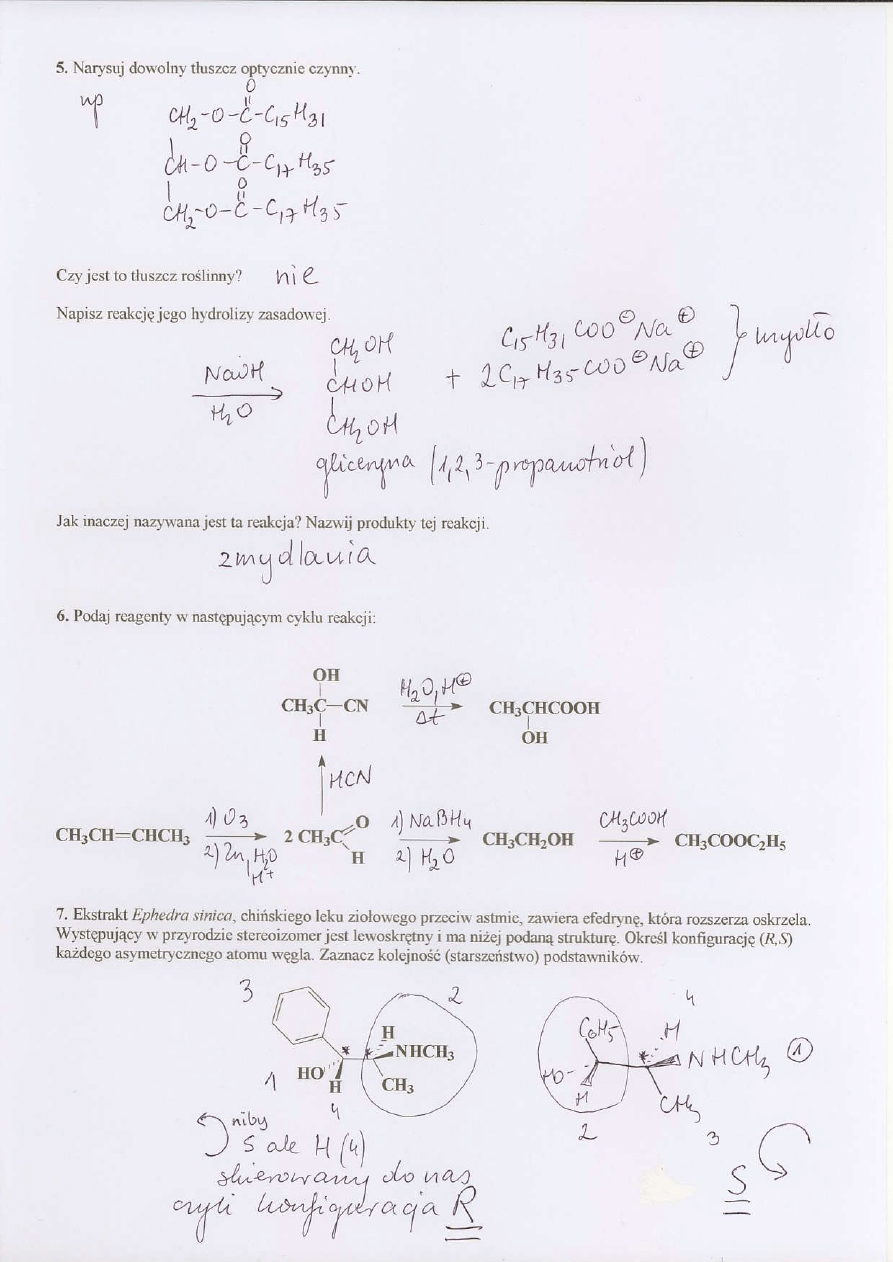 5. Narysuj dowolny tłuszcz optycznie czynny.
np
O
CH₂-O-C-C₁₅H₃₁
O
CH-O-C-C₁₇H₃₅
O
CH₂-O-C-C₁₇H₃₅
Czy jest to tłuszcz roślinny? nie
Napisz reakcję jego hydrolizy zasadowej.
NaOH
H₂O
CH₂OH
CHOH
CH₂OH
+ C₁₅H₃₁COO⊖Na⊕
2C₁₇H₃₅COO⊖Na⊕
} mydło
gliceryna (1,2,3-propanotriol)
Jak inaczej nazywana jest ta reakcja? Nazwij produkty tej reakcji.
zmydlania
6. Podaj reagenty w następującym cyklu reakcji:
OH
CH₃C—CN
H
H₂O, H⊕
Δt
CH₃CHCOOH
OH
HCN
CH₃CH=CHCH₃
1) O₃
2) Zn, H₂O
H+
2 CH₃C
O
H
1) NaBH₄
2) H₂O
CH₃CH₂OH
CH₃COOH
H⊕
CH₃COOC₂H₅
7. Ekstrakt Ephedra sinica, chińskiego leku ziołowego przeciw astmie, zawiera efedrynę, która rozszerza oskrzela.
Występujący w przyrodzie stereoizomer jest lewoskrętny i ma niżej podaną strukturę. Określ konfigurację (R,S)
każdego asymetrycznego atomu węgla. Zaznacz kolejność (starszeństwo) podstawników.
3
2
H
* * NHCH₃
HO
H
CH₃
1
4
niby
S ale H (4)
skierowany do nas
czyli konfiguracja R
4
C₆H₅
H
* NHCH₃ 1
HO-
H
CH₃
2
3
S